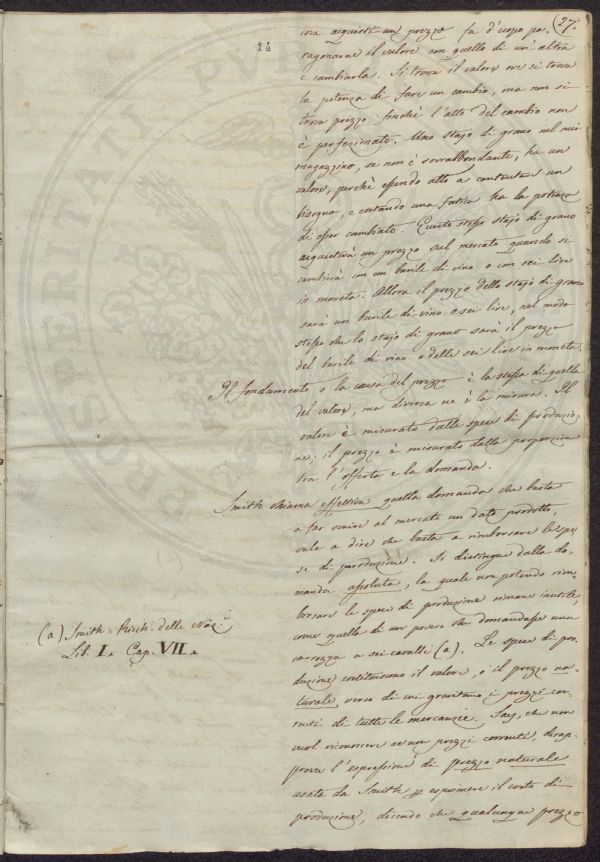 27.
14
cosa acquisti un prezzo fa d'uopo pa-
ragonarne il valore con quello di un'altra
e cambiarla. Si trova il valore ove si trova
la potenza di fare un cambio, ma non si
trova prezzo finchè l'atto del cambio non
è perfezionato. Uno stajo di grano nel mio
magazzino, se non è sovrabbondante, ha un
valore, perchè essendo atto a contentare un
bisogno, e costando una fatica ha la potenza
di esser cambiato. Questo stesso stajo di grano
acquisterà un prezzo sul mercato quando si
cambierà con un barile di vino o con sei lire
in moneta. Allora il prezzo dello stajo di grano
sarà un barile di vino o sei lire, nel modo
stesso che lo stajo di grano sarà il prezzo
del barile di vino o delle sei lire in moneta.
Il fondamento o la causa del prezzo è la stessa di quella
del valore, ma diversa ne è la misura. Il
valore è misurato dalle spese di produzio-
ne; il prezzo è misurato dalla proporzione
tra l'offerta e la domanda.
Smith chiama effettiva quella domanda che basta
a far venire al mercato un dato prodotto,
vale a dire che basta a rimborsare le spe-
se di produzione. Si distingue dalla do-
manda assoluta, la quale non potendo rim-
borsare le spese di produzione rimane inutile,
come quella di un povero che domandasse una
carrozza a sei cavalli (a). Le spese di pro-
duzione costituiscono il valore, o il prezzo na-
turale, verso di cui gravitano i prezzi cor-
renti di tutte le mercanzie. Say, che non
vuol riconoscere se non prezzi correnti, disap-
prova l'espressione di prezzo naturale
usata da Smith p esprimere il costo di
produzione, dicendo che qualunque prezzo
(a) Smith Ricch. delle Naz.
Lib. I. Cap. VII.